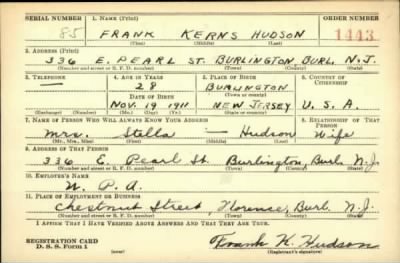 SERIAL NUMBER 1. NAME (Print) ORDER NUMBER
85 FRANK KERNS HUDSON 1443
(First) (Middle) (Last)
2. ADDRESS (Print)
336 E. PEARL ST. BURLINGTON, BURL. N.J.
(Number and street or R. F. D. number) (Town) (County) (State)
3. TELEPHONE 4. AGE IN YEARS 5. PLACE OF BIRTH 6. COUNTRY OF CITIZENSHIP
— 28 BURLINGTON
DATE OF BIRTH (Town or county)
NOV. 19 1911 NEW JERSEY U. S. A.
(Exchange) (Number) (Mo.) (Day) (Yr.) (State or country)
7. NAME OF PERSON WHO WILL ALWAYS KNOW YOUR ADDRESS 8. RELATIONSHIP OF THAT PERSON
Mrs. Stella — Hudson Wife
(Mr., Mrs., Miss) (First) (Middle) (Last)
9. ADDRESS OF THAT PERSON
336 E. Pearl St. Burlington, Burl. N.J.
(Number and street or R. F. D. number) (Town) (County) (State)
10. EMPLOYER'S NAME
W. P. A.
11. PLACE OF EMPLOYMENT OR BUSINESS
Chestnut Street, Florence, Burl. N.J.
(Number and street or R. F. D. number) (Town) (County) (State)
I AFFIRM THAT I HAVE VERIFIED ABOVE ANSWERS AND THAT THEY ARE TRUE.
REGISTRATION CARD
D. S. S. Form 1 (over) Frank K. Hudson
(Registrant's signature)